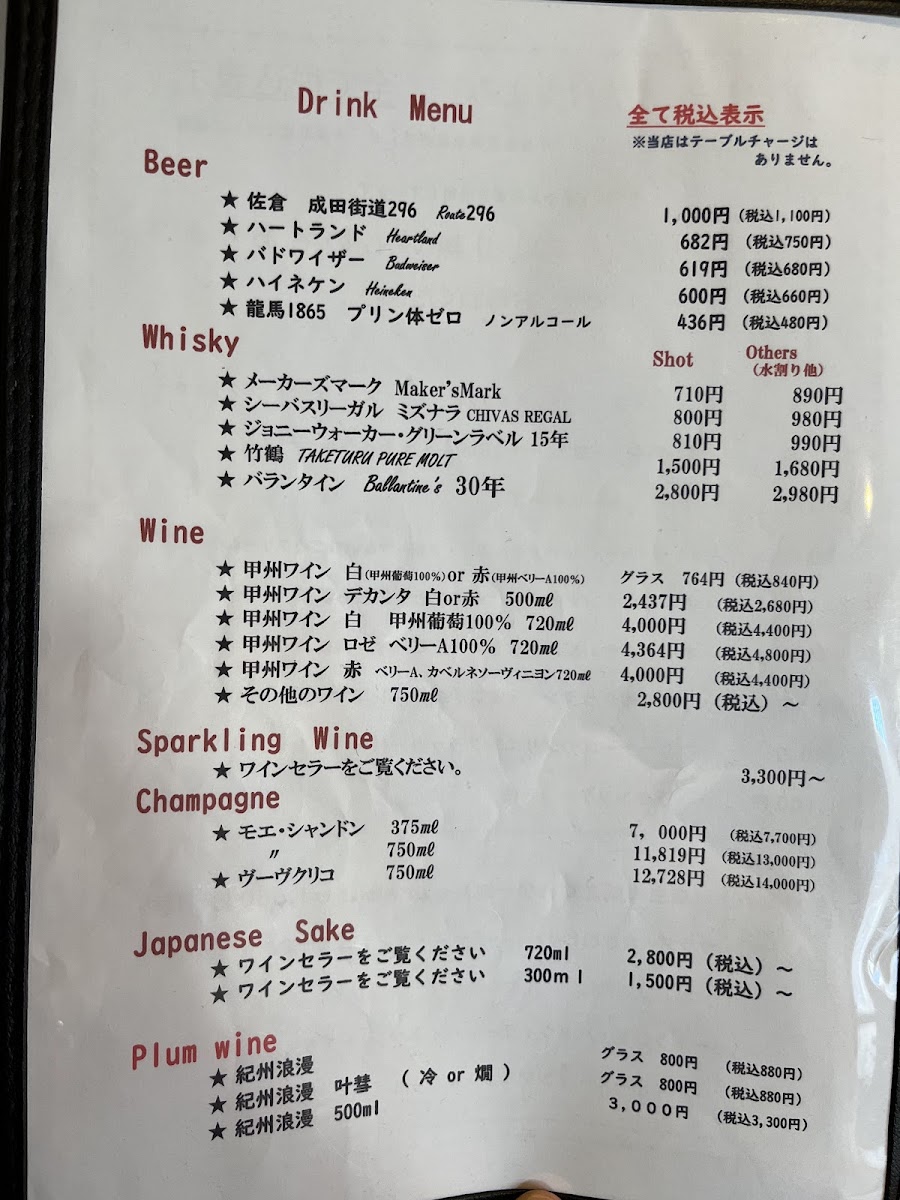 Drink Menu
全て税込表示
※当店はテーブルチャージは
ありません。
Beer
★ 佐倉 成田街道296 Route296 1,000円 (税込1,100円)
★ ハートランド Heartland 682円 (税込750円)
★ バドワイザー Budweiser 619円 (税込680円)
★ ハイネケン Heineken 600円 (税込660円)
★ 龍馬1865 プリン体ゼロ ノンアルコール 436円 (税込480円)
Whisky Shot Others
(水割り他)
★ メーカーズマーク Maker'sMark 710円 890円
★ シーバスリーガル ミズナラ CHIVAS REGAL 800円 980円
★ ジョニーウォーカー・グリーンラベル 15年 810円 990円
★ 竹鶴 TAKETURU PURE MOLT 1,500円 1,680円
★ バランタイン Ballantine's 30年 2,800円 2,980円
Wine
★ 甲州ワイン 白(甲州葡萄100%)or 赤(甲州ベリーA100%) グラス 764円 (税込840円)
★ 甲州ワイン デカンタ 白or赤 500㎖ 2,437円 (税込2,680円)
★ 甲州ワイン 白 甲州葡萄100% 720㎖ 4,000円 (税込4,400円)
★ 甲州ワイン ロゼ ベリーA100% 720㎖ 4,364円 (税込4,800円)
★ 甲州ワイン 赤 ベリーA、カベルネソーヴィニヨン720㎖ 4,000円 (税込4,400円)
★ その他のワイン 750㎖ 2,800円 (税込) ～
Sparkling Wine
★ ワインセラーをご覧ください。 3,300円～
Champagne
★ モエ・シャンドン 375㎖ 7,000円 (税込7,700円)
〃 750㎖ 11,819円 (税込13,000円)
★ ヴーヴクリコ 750㎖ 12,728円 (税込14,000円)
Japanese Sake
★ ワインセラーをご覧ください 720ml 2,800円 (税込) ～
★ ワインセラーをご覧ください 300ml 1,500円 (税込) ～
Plum wine
★ 紀州浪漫 グラス 800円 (税込880円)
★ 紀州浪漫 叶彗 ( 冷 or 燗 ) グラス 800円 (税込880円)
★ 紀州浪漫 500ml 3,000円 (税込3,300円)